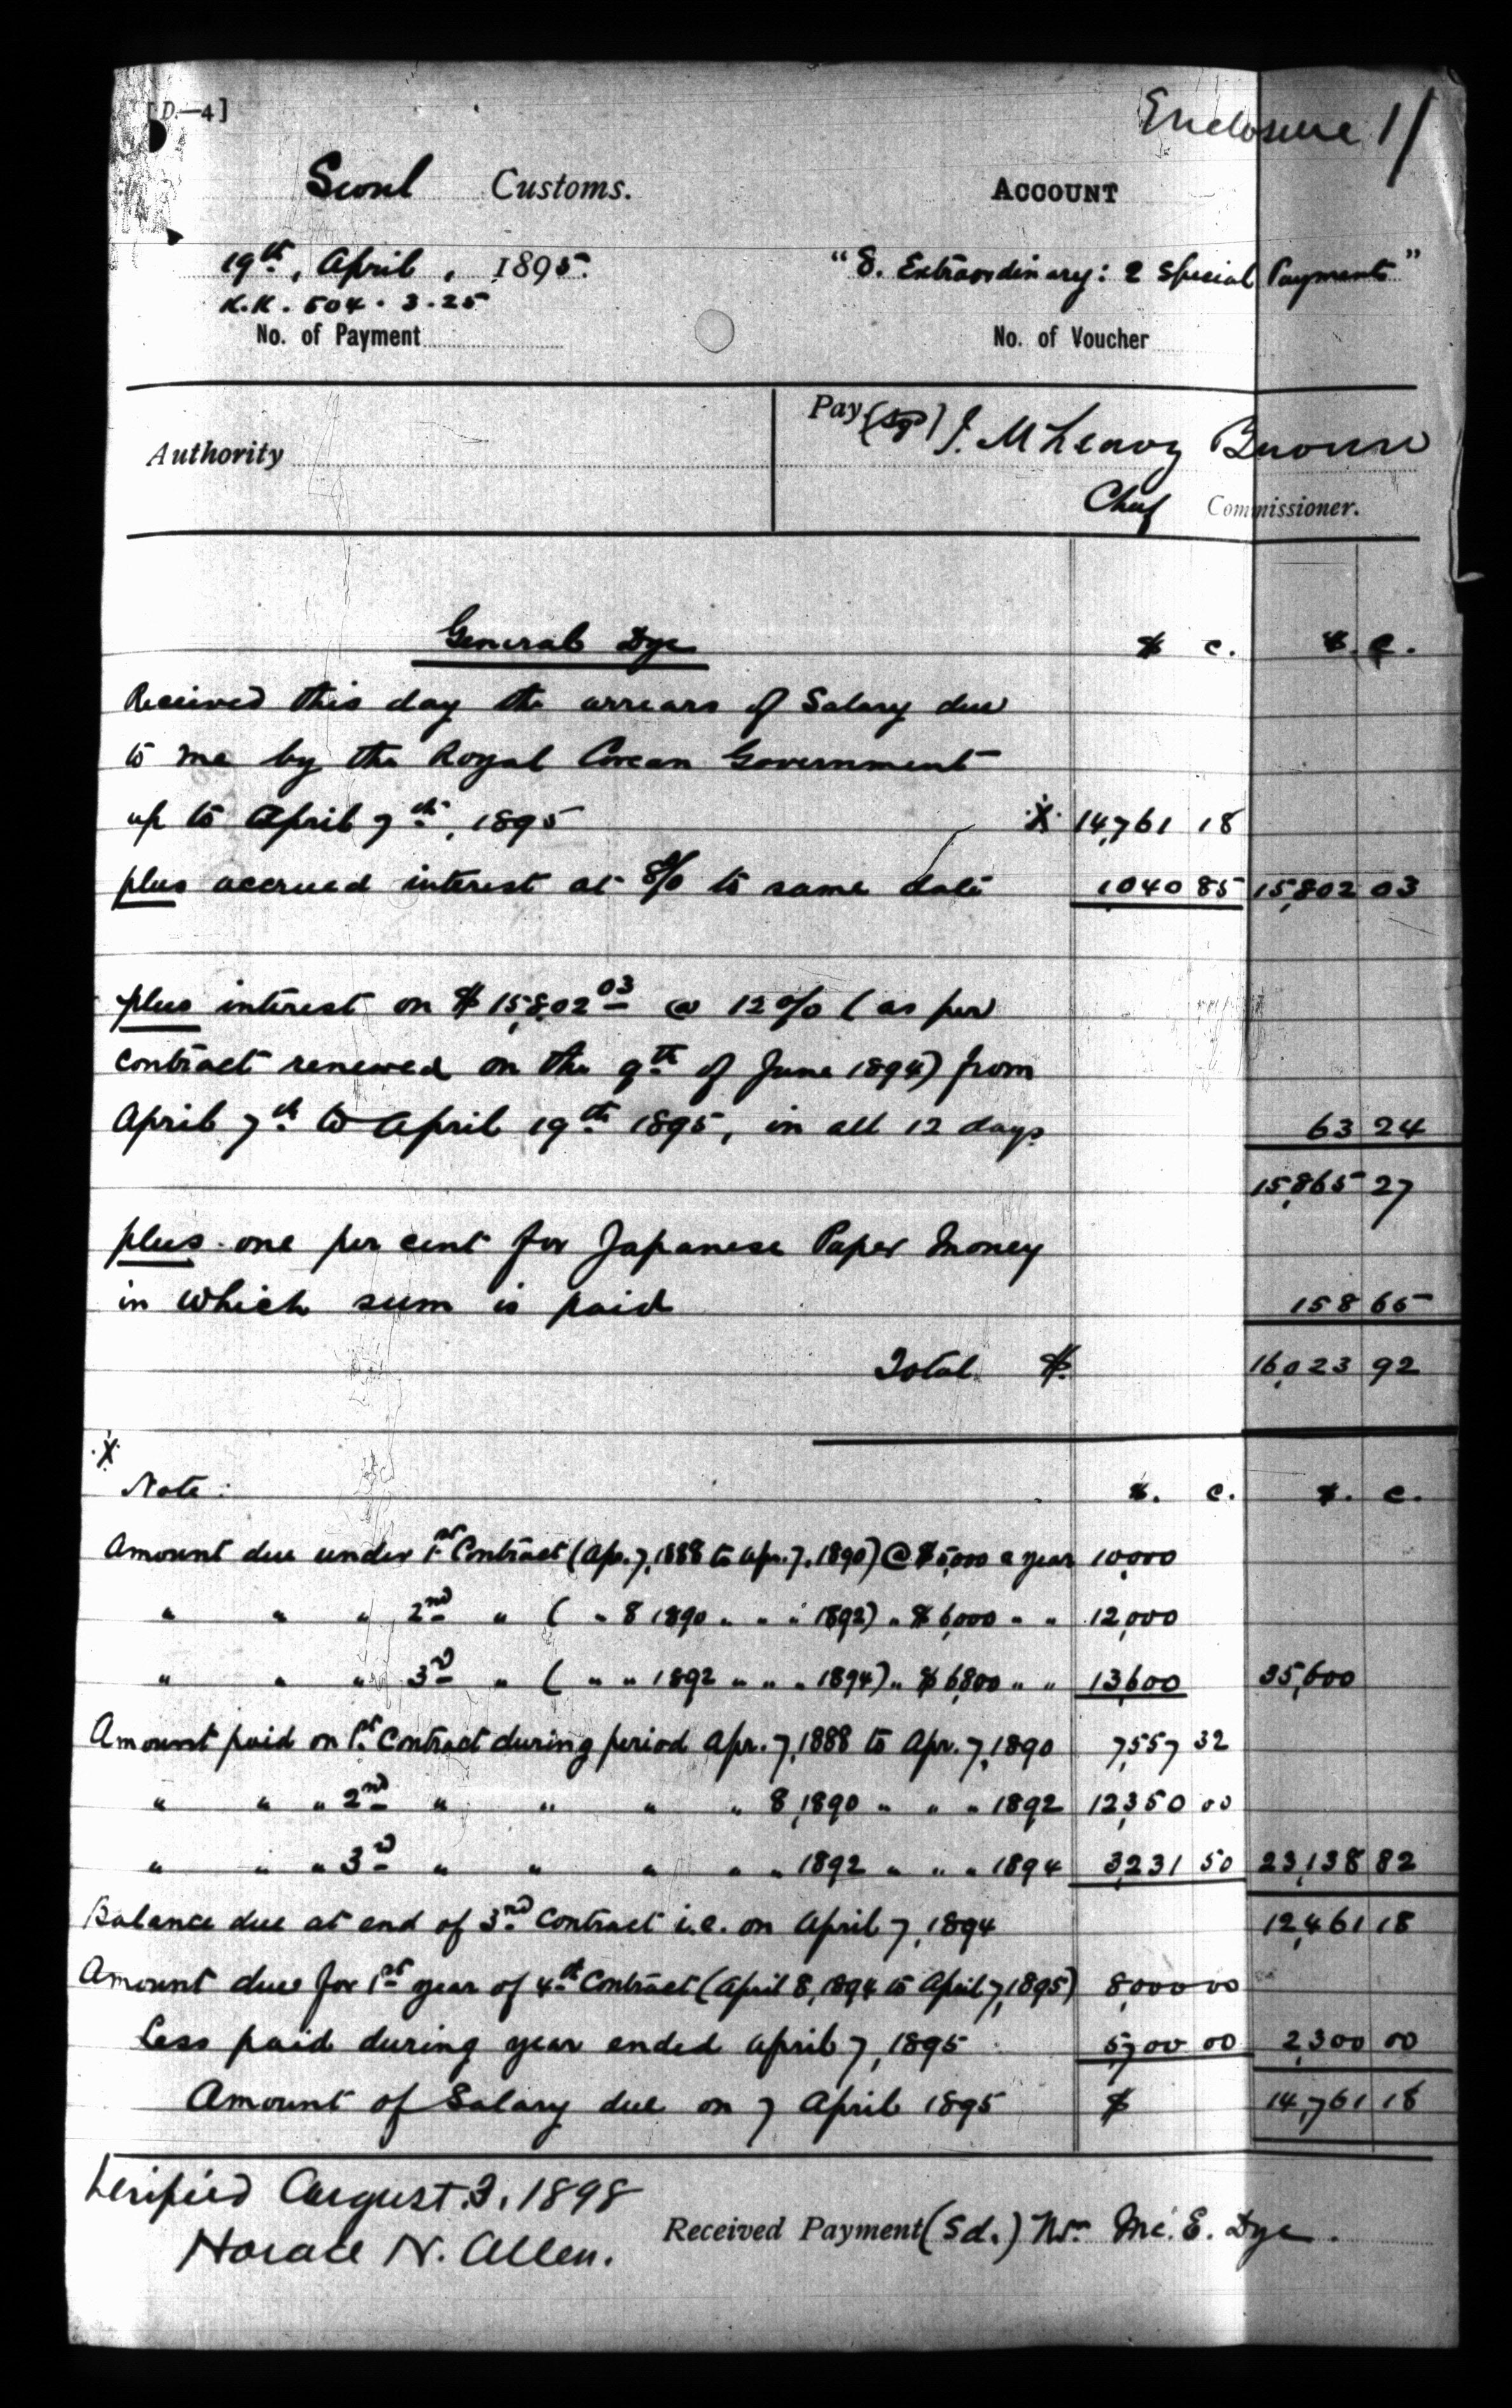 [D.—4]
Enclosure 1/
Seoul Customs.
ACCOUNT
19th, April, 1895.
"8. Extraordinary: 2 Special Payments"
K.K. 504. 3.25
No. of Payment
No. of Voucher
Authority
Pay (sgd) J. McLeavy Brown
Chief Commissioner.
General Dye $ c. $. c.
Received this day the arrears of Salary due
to me by the Royal Corean Government
up to April 7th, 1895 X 14,761 18
plus accrued interest at 8% to same date 1,040 85 15,802 03
plus interest on $ 15,802 03 @ 12% (as per
contract renewed on the 9th of June 1894) from
April 7th to April 19th 1895, in all 12 days 63 24
15,865 27
plus one per cent for Japanese Paper Money
in which sum is paid 158 65
Total $. 16,023 92
X
Note: $. c. $. c.
Amount due under 1st Contract (Apr. 7, 1888 to Apr. 7, 1890) @ $5,000 a year 10,000
" " " 2nd " ( " 8 1890 " " " 1892) " $ 6,000 " " 12,000
" " " 3rd " ( " " 1892 " " " 1894) " $ 6,800 " " 13,600 35,600
Amount paid on 1st Contract during period Apr. 7, 1888 to Apr. 7, 1890 7,557 32
" " " 2nd " " " " 8, 1890 " " " 1892 12,350 00
" " " 3rd " " " " " 1892 " " " 1894 3,231 50 23,138 82
Balance due at end of 3rd Contract i.e. on April 7, 1894 12,461 18
Amount due for 1st year of 4th Contract (April 8, 1894 to April 7, 1895) 8,000 00
Less paid during year ended April 7, 1895 5,700 00 2,300 00
Amount of Salary due on 7 April 1895 $ 14,761 18
Verified August 3, 1898
Horace N. Allen.
Received Payment (Sd.) Wm. Mc. E. Dye.